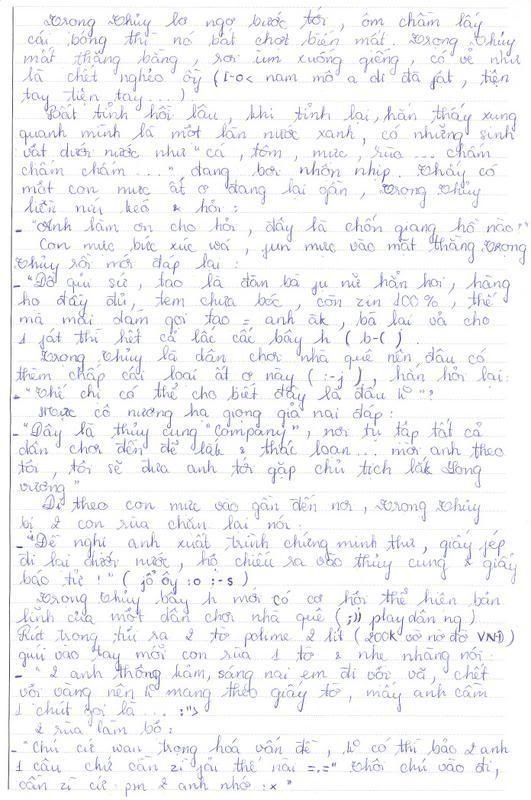 Trọng Thủy lơ ngơ bước tới, ôm chầm lấy
cái bóng thì nó bất chợt biến mất. Trọng Thủy
mất thăng bằng, rơi ùm xuống giếng, có vẻ như
là chết nghẻo òy (T-o< nam mô a di đà fật, tiện
tay tiện tay...)
Bất tỉnh hồi lâu, khi tỉnh lại, hắn thấy xung
quanh mình là một làn nước xanh, có những sinh
vật dưới nước như "cá, tôm, mực, rùa ... chấm
chấm chấm ..." đang bơi nhộn nhịp. Thấy có
một con mực ất ơ đang lại gần, Trọng Thủy
liền níu kéo & hỏi:
- "Anh làm ơn cho hỏi, đây là chốn giang hồ nào?"
Con mực bức xúc wá, fun mực vào mặt thằng Trọng
Thủy rồi mới đáp lại:
- "Đồ quỉ sứ, tao là đàn bà fụ nữ hẳn hơi, hàng
họ đầy đủ, tem chưa bóc, còn zin 100%, thế
mà mài dám gọi tao = anh àk, bà lại vả cho
1 fát thì hết cả lấc cấc bây h (b-().
Trọng Thủy là dân chơi nhà quê nên đâu có
thèm chấp cái loại ất ơ này (:-j), hắn hỏi lại:
- "Thế chị có thể cho biết đây là đâu ko"?
Mực cô nương hạ giọng giả nai đáp:
- "Đây là thủy cung "Company", nơi tụ tập tất cả
dân chơi đến để lắk & thác loạn... mời anh theo
tôi, tôi sẽ đưa anh tới gặp chủ tịch lắk Long
vương"
Đi theo con mực vào gần đến nơi, Trọng Thủy
bị 2 con rùa chặn lại nói:
- "Đề nghị anh xuất trình chứng minh thư, giấy fép
đi lại dưới nước, hộ chiếu ra vào thủy cung & giấy
báo tử!" (jồ ôy :o :-s)
Trọng Thủy bây h mới có cơ hội thể hiện bản
lĩnh của một dân chơi nhà quê (;)) playdân ng)
Rút trong túi ra 2 tờ polime 2 lít (200k vờ nờ đờ VNĐ)
gúi vào tay mỗi con rùa 1 tờ & nhẹ nhàng nói:
- "2 anh thông kảm, sáng nai em đi vội vã, chết
vội vàng nên ko mang theo giấy tờ, mấy anh cầm
1 chút gọi là ... :">
2 rùa làm bộ:
- "Chú cứ wan trọng hoá vấn đề, ko có thì bảo 2 anh
1 câu chứ cần zì fải thế nài =.=" Thôi chú vào đi,
cần zì cứ pm 2 anh nhớ :x"